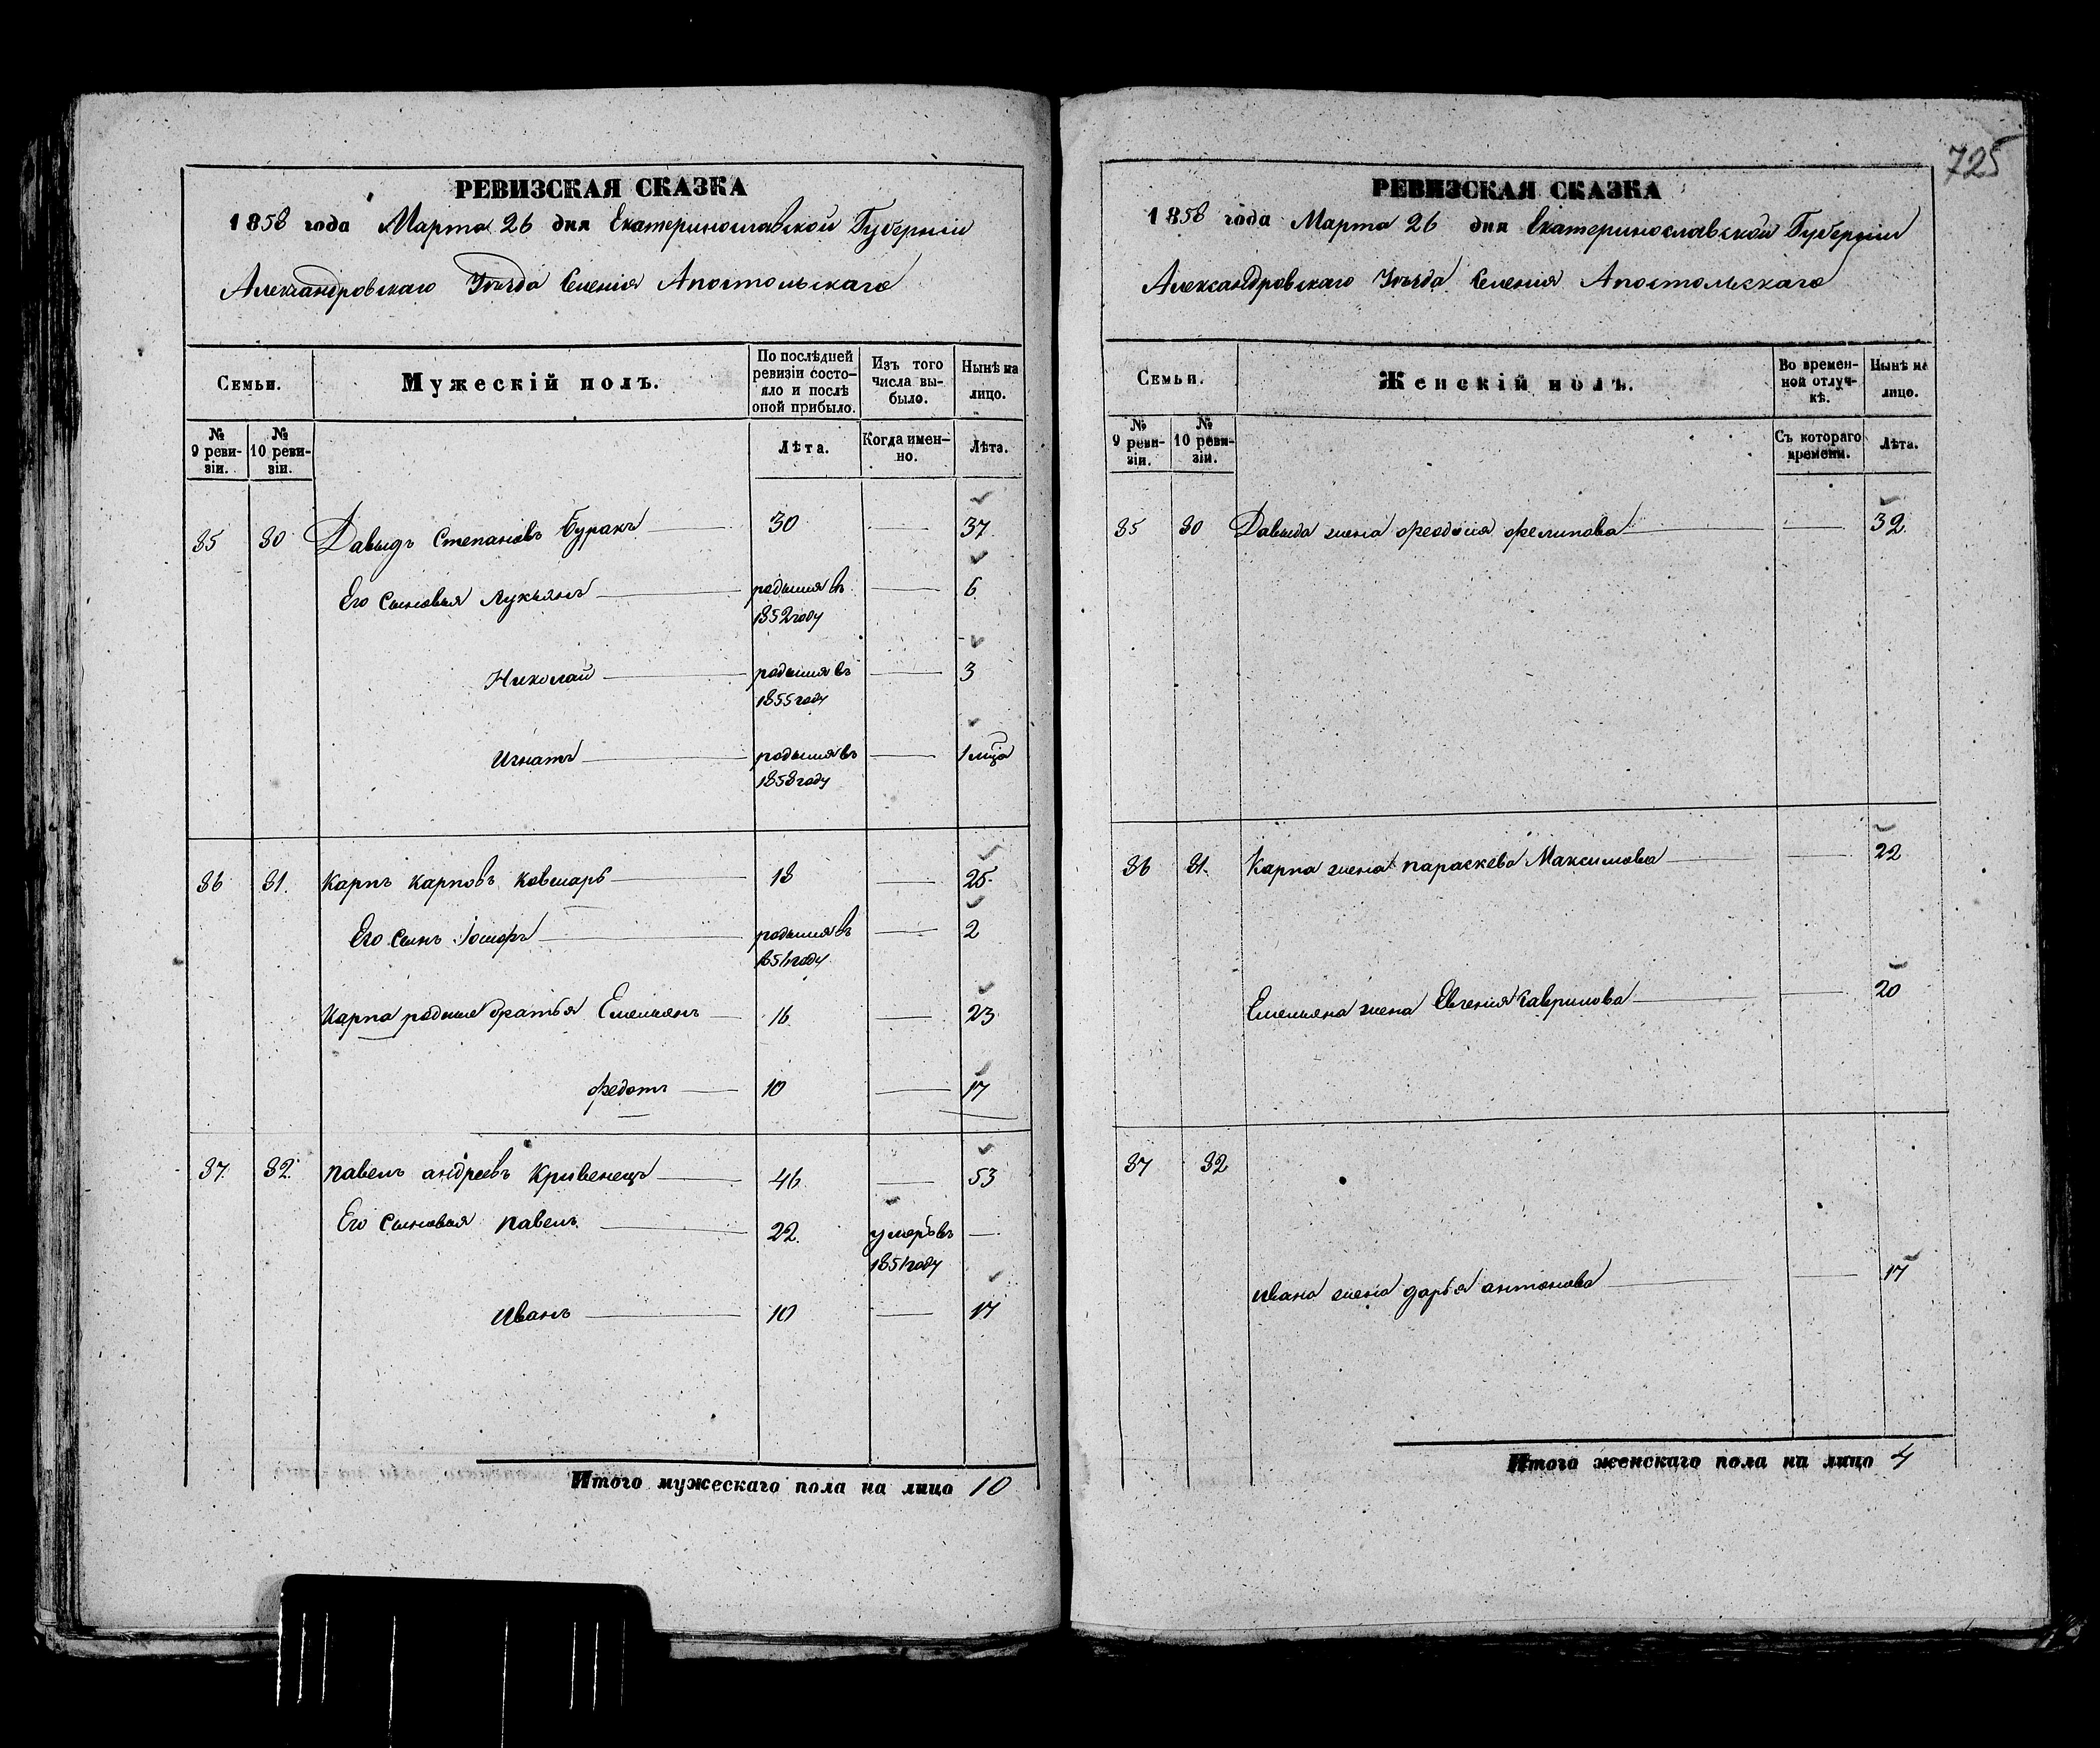 РЕВИЗСКАЯ СКАЗКА
1858 года Марта 26 дня Екатеринославской Губерніи
Александровскаго Уѣзда Селенія Апостольскаго
Семьи.
Мужескій полъ.
По послѣдней ревизіи состояло и послѣ оной прибыло.
Изъ того числа выбыло.
Нынѣ на лицо.
№ 9 ревизіи.
№ 10 ревизіи.
Лѣта.
Когда именно.
Лѣта.
85 80 Давыдъ Степановъ Буракъ 30 37
Его Сыновья Лукьянъ родился въ 1852 году 6
Николай родился въ 1855 году 3
Игнатъ родился въ 1858 году 1 мца
86 81. Карпъ Карповъ Ковшарь 18 25
Его Сынъ Іосифъ родился въ 1856 году 2
Карпа родные братья Емельянъ 16 23
Федотъ 10 17
87 82 Павелъ Андреевъ Кривенецъ 46 53
Его Сыновья Павелъ 22 умеръ въ 1851 году
Иванъ 10 17
Итого мужескаго пола на лицо 10
725
РЕВИЗСКАЯ СКАЗКА
1858 года Марта 26 дня Екатеринославской Губерніи
Александровскаго Уѣзда Селенія Апостольскаго
Семьи.
Женскій полъ.
Во временной отлучкѣ.
Нынѣ на лицо.
№ 9 ревизіи.
№ 10 ревизіи.
Съ котораго времени.
Лѣта.
85 80 Давыда жена Феодосия Фелипова 32
86 81. Карпа жена Параскева Максимова 22
Емельяна жена Евгения Гаврилова 20
87 82
Ивана жена Дарья Антонова 17
Итого женскаго пола на лицо 4